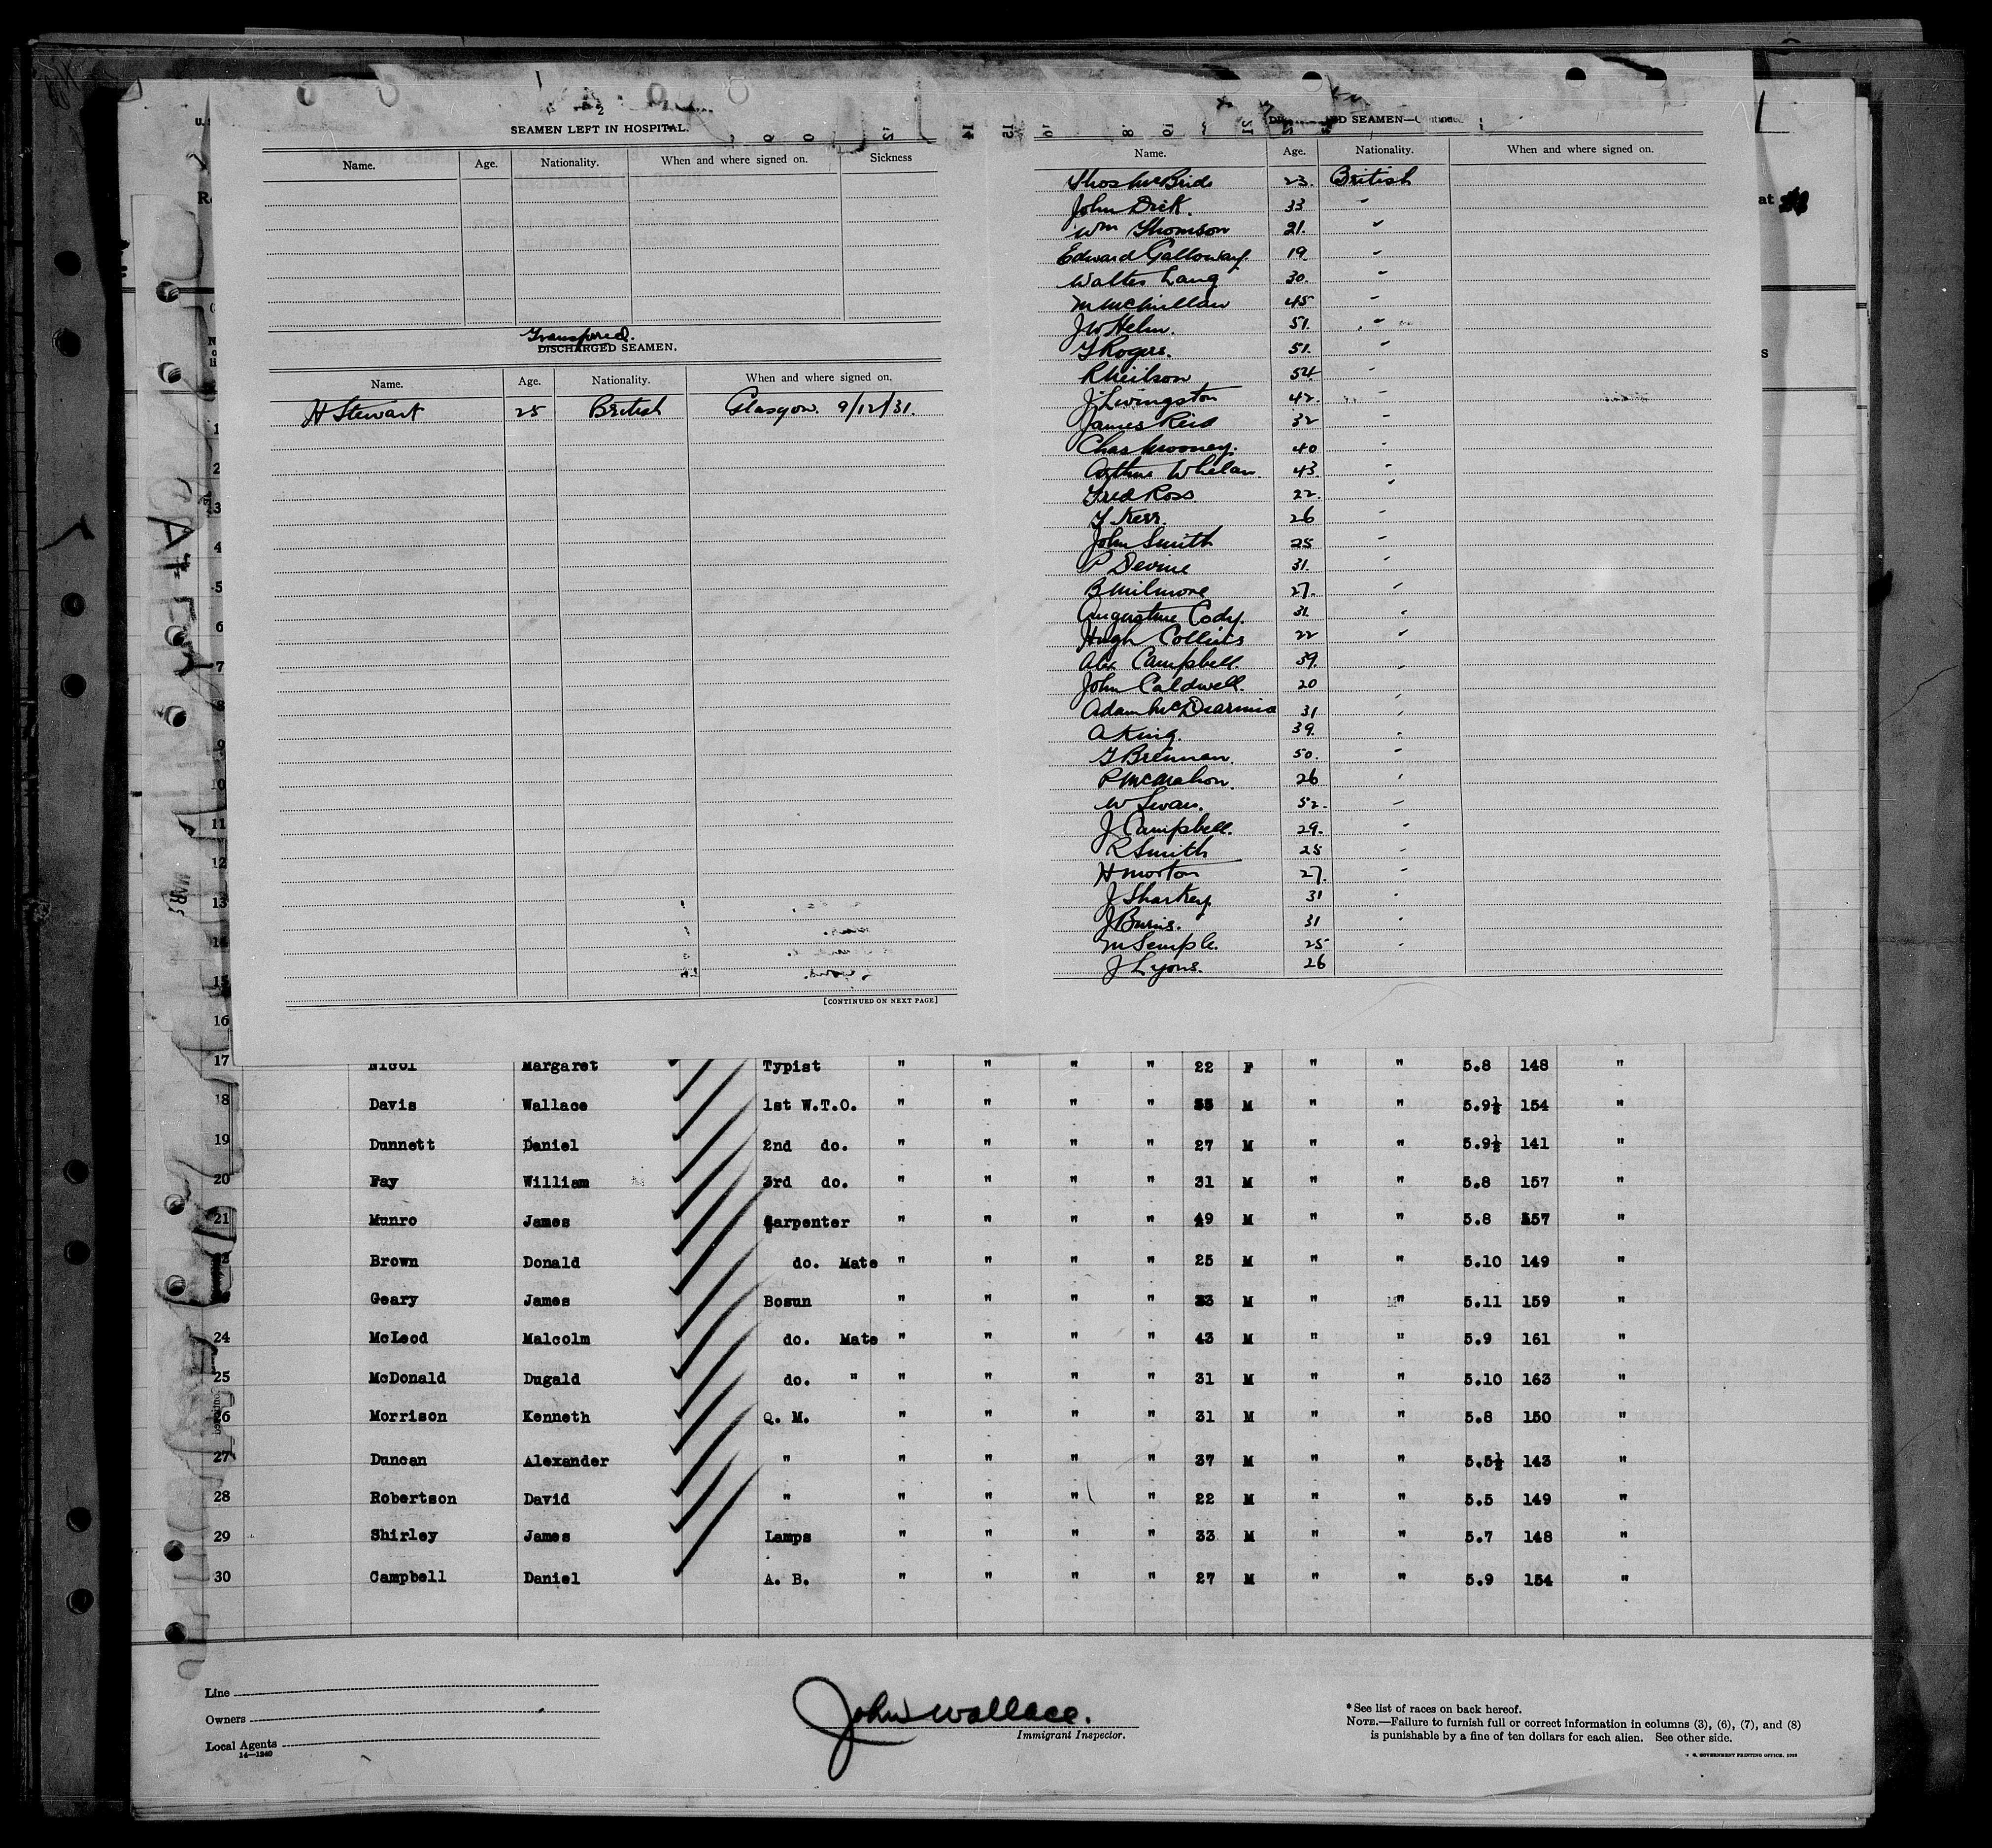 SEAMEN LEFT IN HOSPITAL.
Name. Age. Nationality. When and where signed on. Sickness
Transferred.
DISCHARGED SEAMEN.
Name. Age. Nationality. When and where signed on.
H Stewart 25 British Glasgow. 9/12/31.
[CONTINUED ON NEXT PAGE]
SEAMEN—Continued
Name. Age. Nationality. When and where signed on.
Thos McBride 23. British
John Dick. 33 "
Wm Thomson 21. "
Edward Galloway. 19. "
Walter Lang 30. "
M McMillan 45 "
J W Helm. 51. "
T Rogers. 51. "
R Neilson 54 "
J Livingston 42. "
James Reid 32 "
Chas Mooney. 40 "
Arthur Whelan. 43. "
Fred Ross 22. "
T Kerr. 26 "
John Smith 25 "
P Devine 31. "
B Milmore 27. "
Augustine Cody. 31. "
Hugh Collins 22 "
Alex Campbell. 39. "
John Caldwell. 20 "
Adam McDiarmid 31 "
A King. 39. "
T Brennan. 50. "
P McMahon. 26 "
W Swan. 52. "
J Campbell. 29. "
R Smith 25 "
H Morton 27. "
J Sharkey 31 "
J Burns. 31 "
M Semple. 25 "
J Lyons. 26
17 Nicol Margaret Typist " " " " 22 F " " 5.8 148 "
18 Davis Wallace 1st W.T.O. " " " " 35 M " " 5.9½ 154 "
19 Dunnett Daniel 2nd do. " " " " 27 M " " 5.9½ 141 "
20 Fay William 3rd do. " " " " 31 M " " 5.8 157 "
21 Munro James Carpenter " " " " 49 M " " 5.8 157 "
Brown Donald do. Mate " " " " 25 M " " 5.10 149 "
Geary James Bosun " " " " 33 M " " 5.11 159 "
24 McLeod Malcolm do. Mate " " " " 43 M " " 5.9 161 "
25 McDonald Dugald do. " " " " " 31 M " " 5.10 163 "
26 Morrison Kenneth Q. M. " " " " 31 M " " 5.8 150 "
27 Duncan Alexander " " " " " 37 M " " 5.5½ 143 "
28 Robertson David " " " " " 22 M " " 5.5 149 "
29 Shirley James Lamps " " " " 33 M " " 5.7 148 "
30 Campbell Daniel A. B. " " " " 27 M " " 5.9 154 "
Line
Owners
Local Agents
14—1240
John Wallace.
Immigrant Inspector.
* See list of races on back hereof.
NOTE.—Failure to furnish full or correct information in columns (3), (6), (7), and (8)
is punishable by a fine of ten dollars for each alien. See other side.
GOVERNMENT PRINTING OFFICE